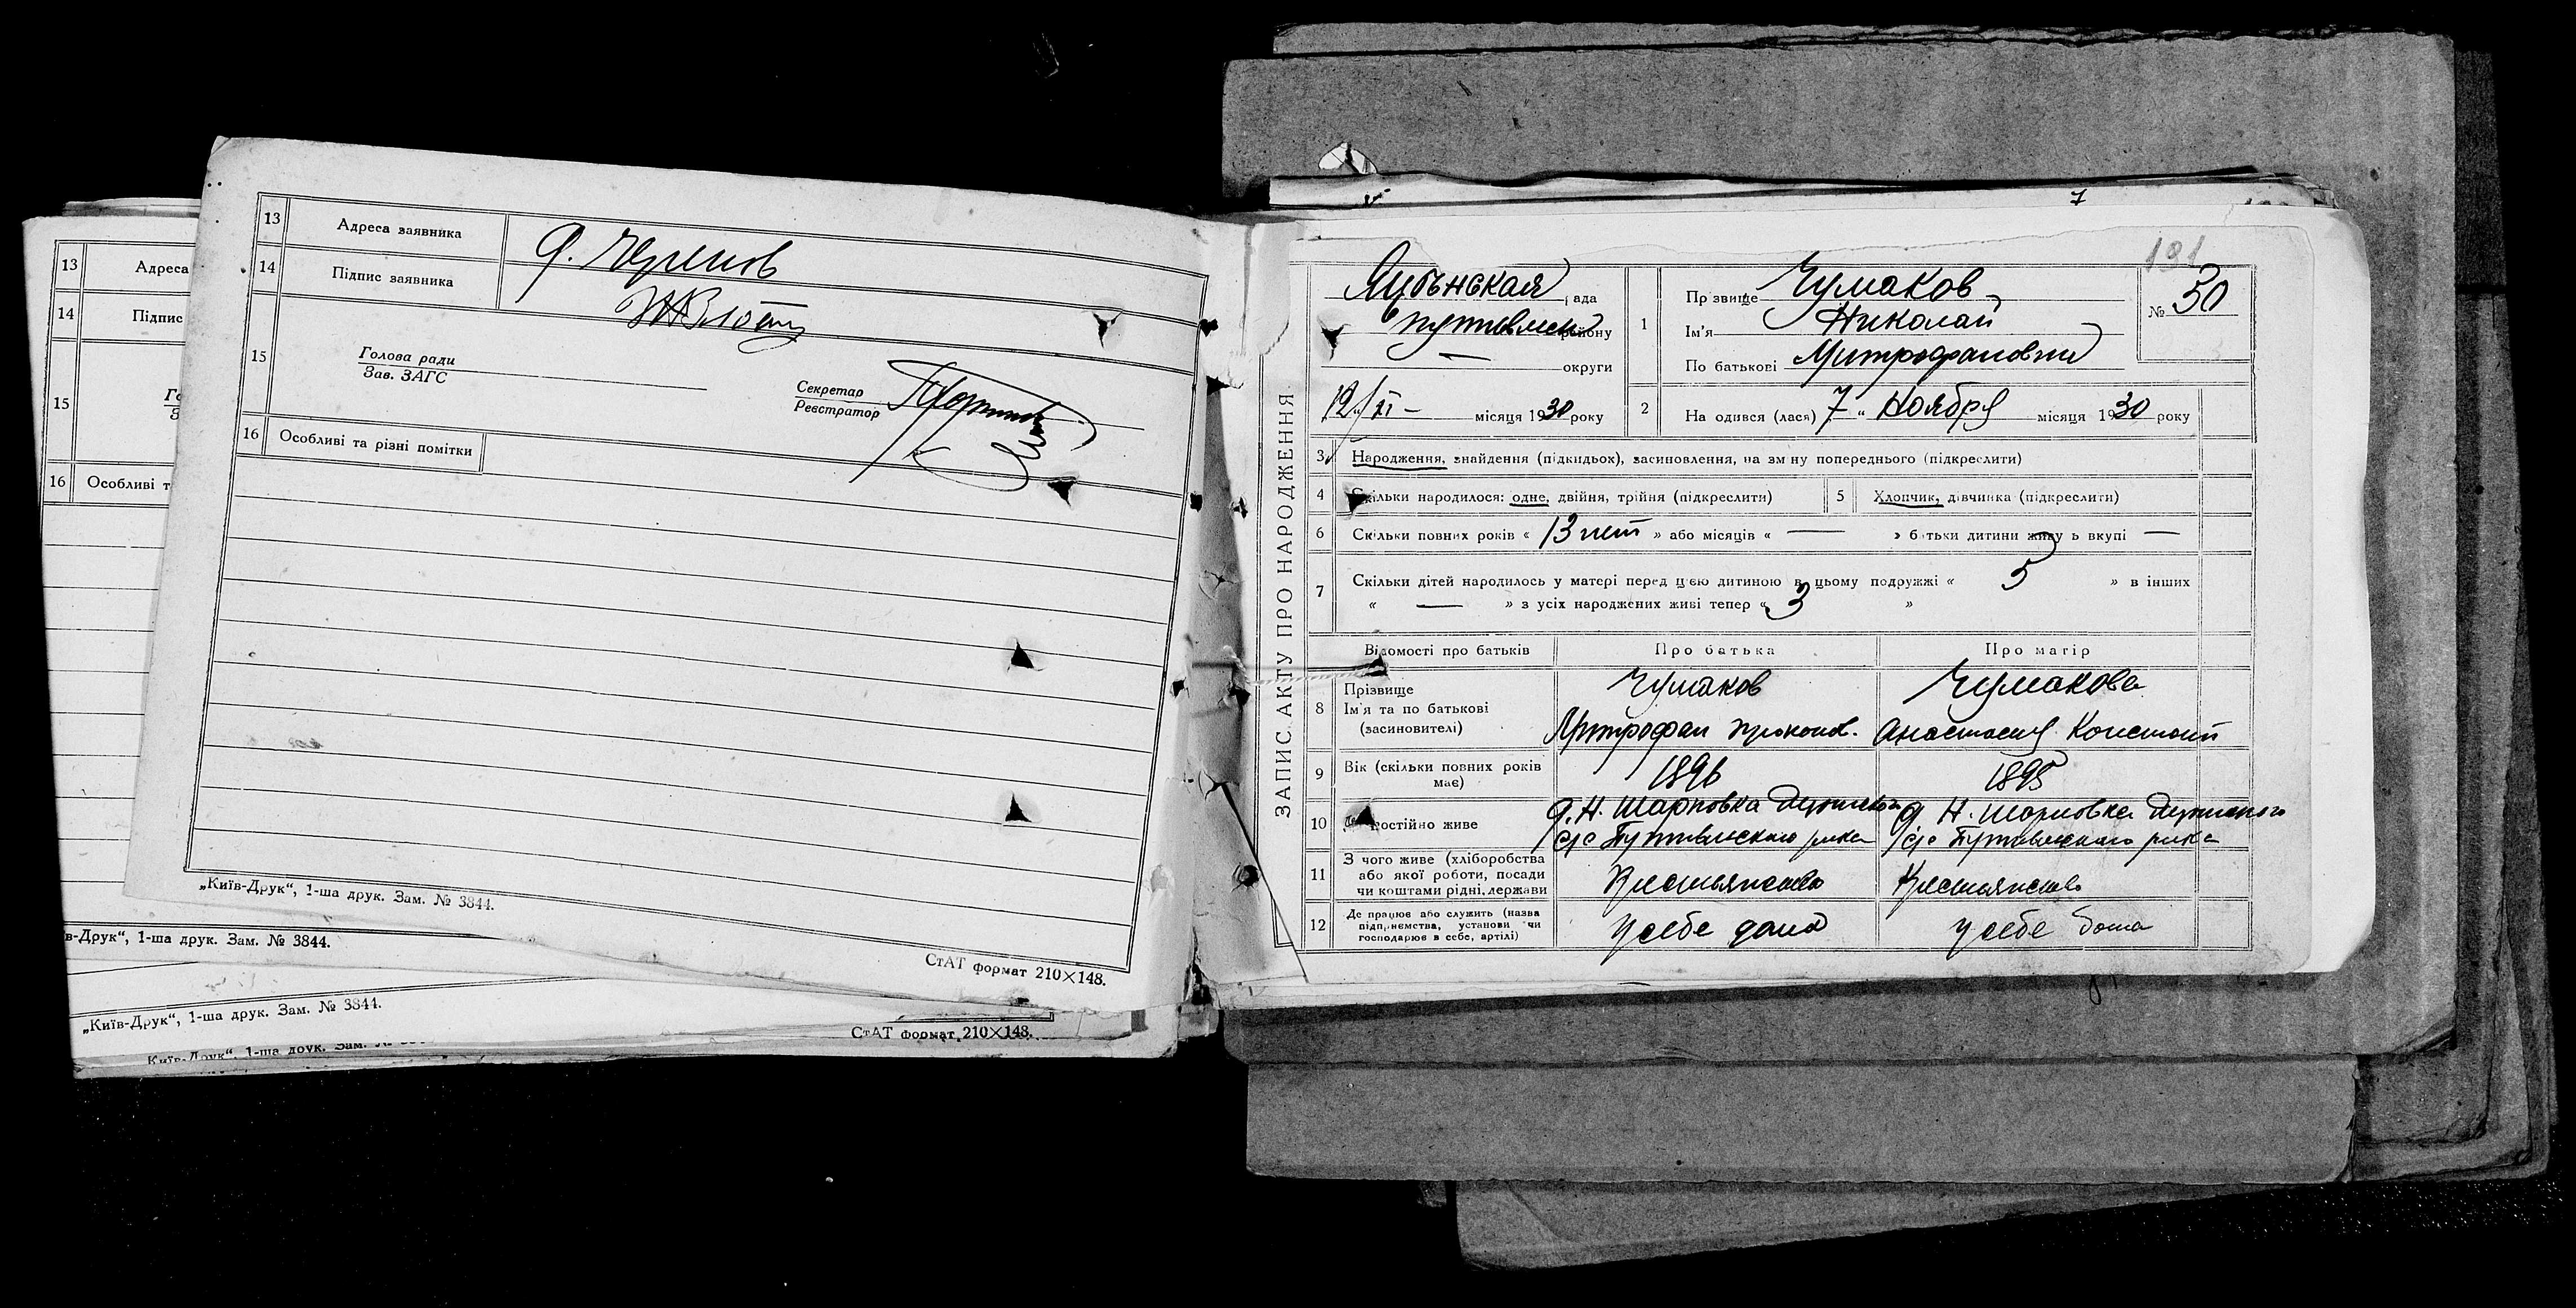 13 Адреса заявника
14 Підпис заявника
15 Голова ради
Зав. ЗАГС
Секретар
Реєстратор
16 Особливі та різні помітки
„Київ-Друк“, 1-ша друк. Зам. № 3844.
СтАТ формат 210×148.
13 Адреса
14 Підпис
15
16 Особливі т
в-Друк“, 1-ша друк. Зам. № 3844.
„Київ-Друк“, 1-ша друк. Зам. № 3844.
СтАТ формат 210×148.
ЗАПИС АКТУ ПРО НАРОДЖЕННЯ
ада
району
округи
12/XI- місяця 1930 року
1 Прізвище Чумаков
Ім'я Николай
По батькові Митрофанович
191
№ 30
2 На одився (лася) 7 “ Ноября місяця 1930 року
3 Народження, знайдення (підкидьох), засиновлення, на зміну попереднього (підкреслити)
4 Скільки народилося: одне, двійня, трійня (підкреслити)
5 Хлопчик, дівчинка (підкреслити)
6 Скільки повних років « 13 лет » або місяців « — » батьки дитини живу ь вкупі —
7 Скільки дітей народилось у матері перед цією дитиною в цьому подружжі « 5 » в інших
« — » з усіх народжених живі тепер « 3 »
Відомості про батьків Про батька Про матір
8 Прізвище Чумаков Чумакова
Ім'я та по батькові
(засиновителі) Митрофан Прокоп. Анастасия Констант
9 Вік (скільки повних років має) 1896 1895
10 постійно живе д. Н. Шарповка д Н. Шарповка
с/с Путивльского с/с Путивльского
11 З чого живе (хліборобства
або якої роботи, посади
чи коштами рідні, держави Крестьянство Крестьянство
12 Де працює або служить (назва
підприємства, установи чи
господарює в себе, артілі) у себе дома у себе дома